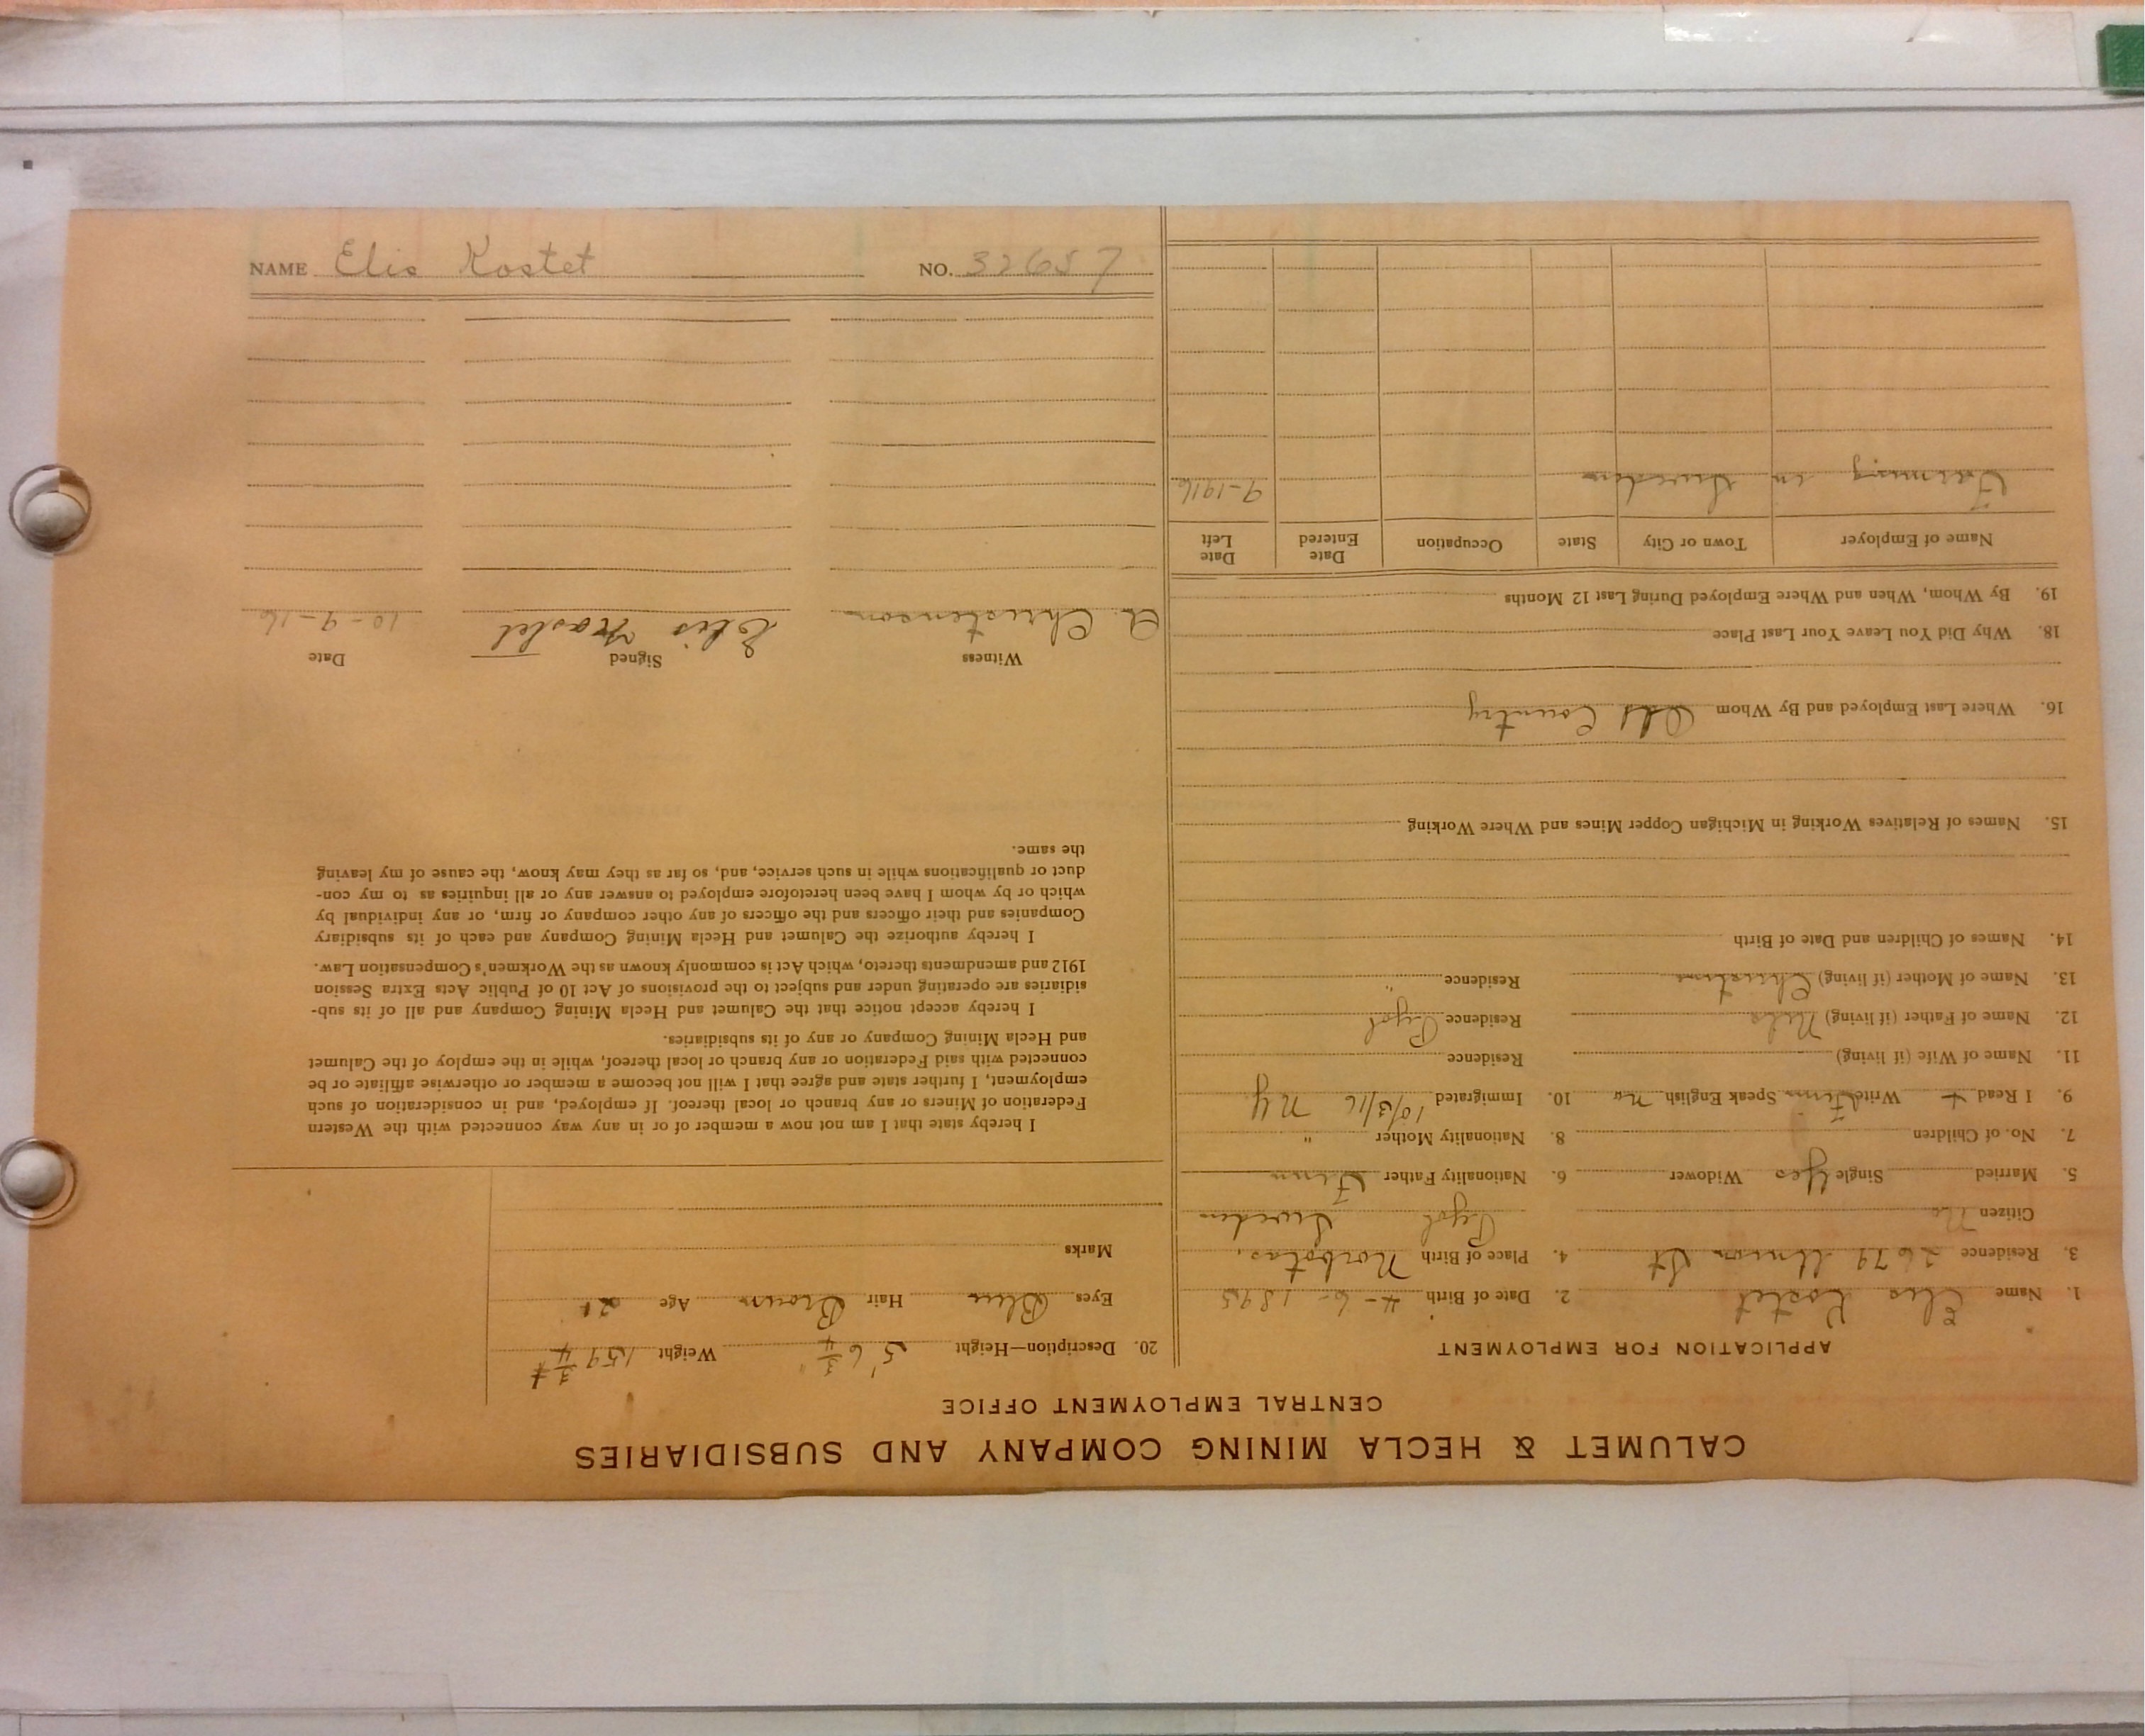 CALUMET & HECLA MINING COMPANY AND SUBSIDIARIES
CENTRAL EMPLOYMENT OFFICE
APPLICATION FOR EMPLOYMENT
1. Name Elis Kostet 2. Date of Birth 4-6-1895
3. Residence 2679 Union St 4. Place of Birth Norbotas,
Citizen No Pajol Sweden
5. Married Single Yes Widower 6. Nationality Father Finn
7. No. of Children 8. Nationality Mother "
9. I Read + Write Finn Speak English no 10. Immigrated 10/3/16 NY
11. Name of Wife (if living) Residence
12. Name of Father (if living) Nels Residence Pajol
13. Name of Mother (if living) Residence "
14. Names of Children and Date of Birth
15. Names of Relatives Working in Michigan Copper Mines and Where Working
16. Where Last Employed and By Whom Old Country
18. Why Did You Leave Your Last Place
19. By Whom, When and Where Employed During Last 12 Months
Name of Employer Town or City State Occupation Date Entered Date Left
Farming in Sweden 9-1916
20. Description—Height 5' 6 3/4" Weight 159 3/4 #
Eyes Blue Hair Brown Age 21
Marks
I hereby state that I am not now a member of or in any way connected with the Western
Federation of Miners or any branch or local thereof. If employed, and in consideration of such
employment, I further state and agree that I will not become a member or otherwise affiliate or be
connected with said Federation or any branch or local thereof, while in the employ of the Calumet
and Hecla Mining Company or any of its subsidiaries.
I hereby accept notice that the Calumet and Hecla Mining Company and all of its sub-
sidiaries are operating under and subject to the provisions of Act 10 of Public Acts Extra Session
1912 and amendments thereto, which Act is commonly known as the Workmen's Compensation Law.
I hereby authorize the Calumet and Hecla Mining Company and each of its subsidiary
Companies and their officers and the officers of any other company or firm, or any individual by
which or by whom I have been heretofore employed to answer any or all inquiries as to my con-
duct or qualifications while in such service, and, so far as they may know, the cause of my leaving
the same.
Witness Signed Date
A. Christenson Elis Kostet 10-9-16
NAME Elis Kostet NO. 32657